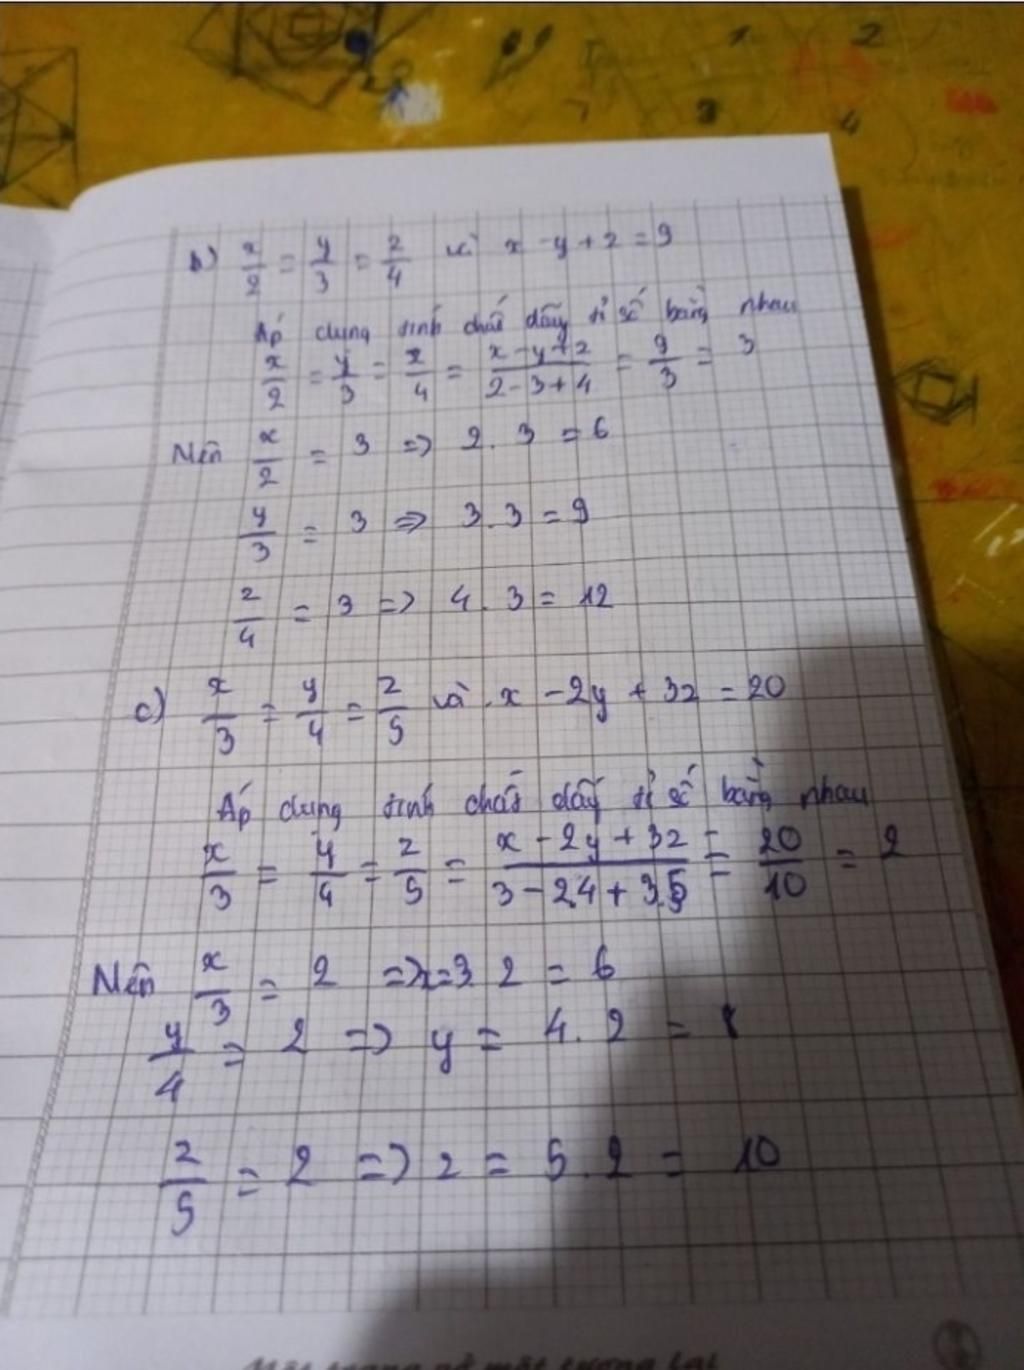 b) x/2 = y/3 = z/4 và x - y + z = 9
Áp dụng tính chất dãy tỉ số bằng nhau
x/2 = y/3 = z/4 = (x - y + z)/(2 - 3 + 4) = 9/3 = 3
Nên x/2 = 3 => 2. 3 = 6
y/3 = 3 => 3. 3 = 9
z/4 = 3 => 4. 3 = 12
c) x/3 = y/4 = z/5 và x - 2y + 3z = 20
Áp dụng tính chất dãy tỉ số bằng nhau
x/3 = y/4 = z/5 = (x - 2y + 3z)/(3 - 2.4 + 3.5) = 20/10 = 2
Nên x/3 = 2 => x = 3 2 = 6
y/4 = 2 => y = 4. 2 = 8
z/5 = 2 => z = 5. 2 = 10
1 2
7 3 4